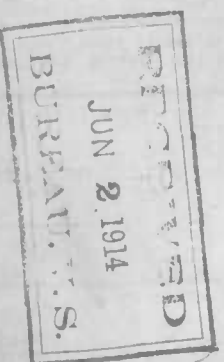 RECEIVED
JUN 2 1914
BUREAU